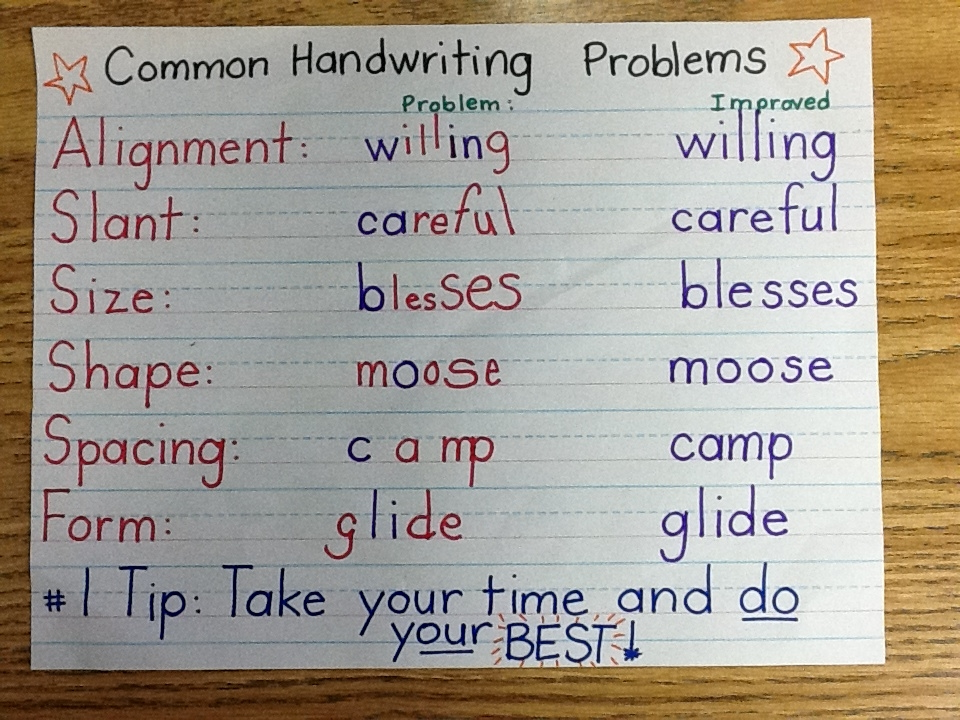 Common Handwriting Problems
Problem: Improved
Alignment: willing willing
Slant: careful careful
Size: blesses blesses
Shape: moose moose
Spacing: c a mp camp
Form: glide glide
#1 Tip: Take your time and do
your BEST!